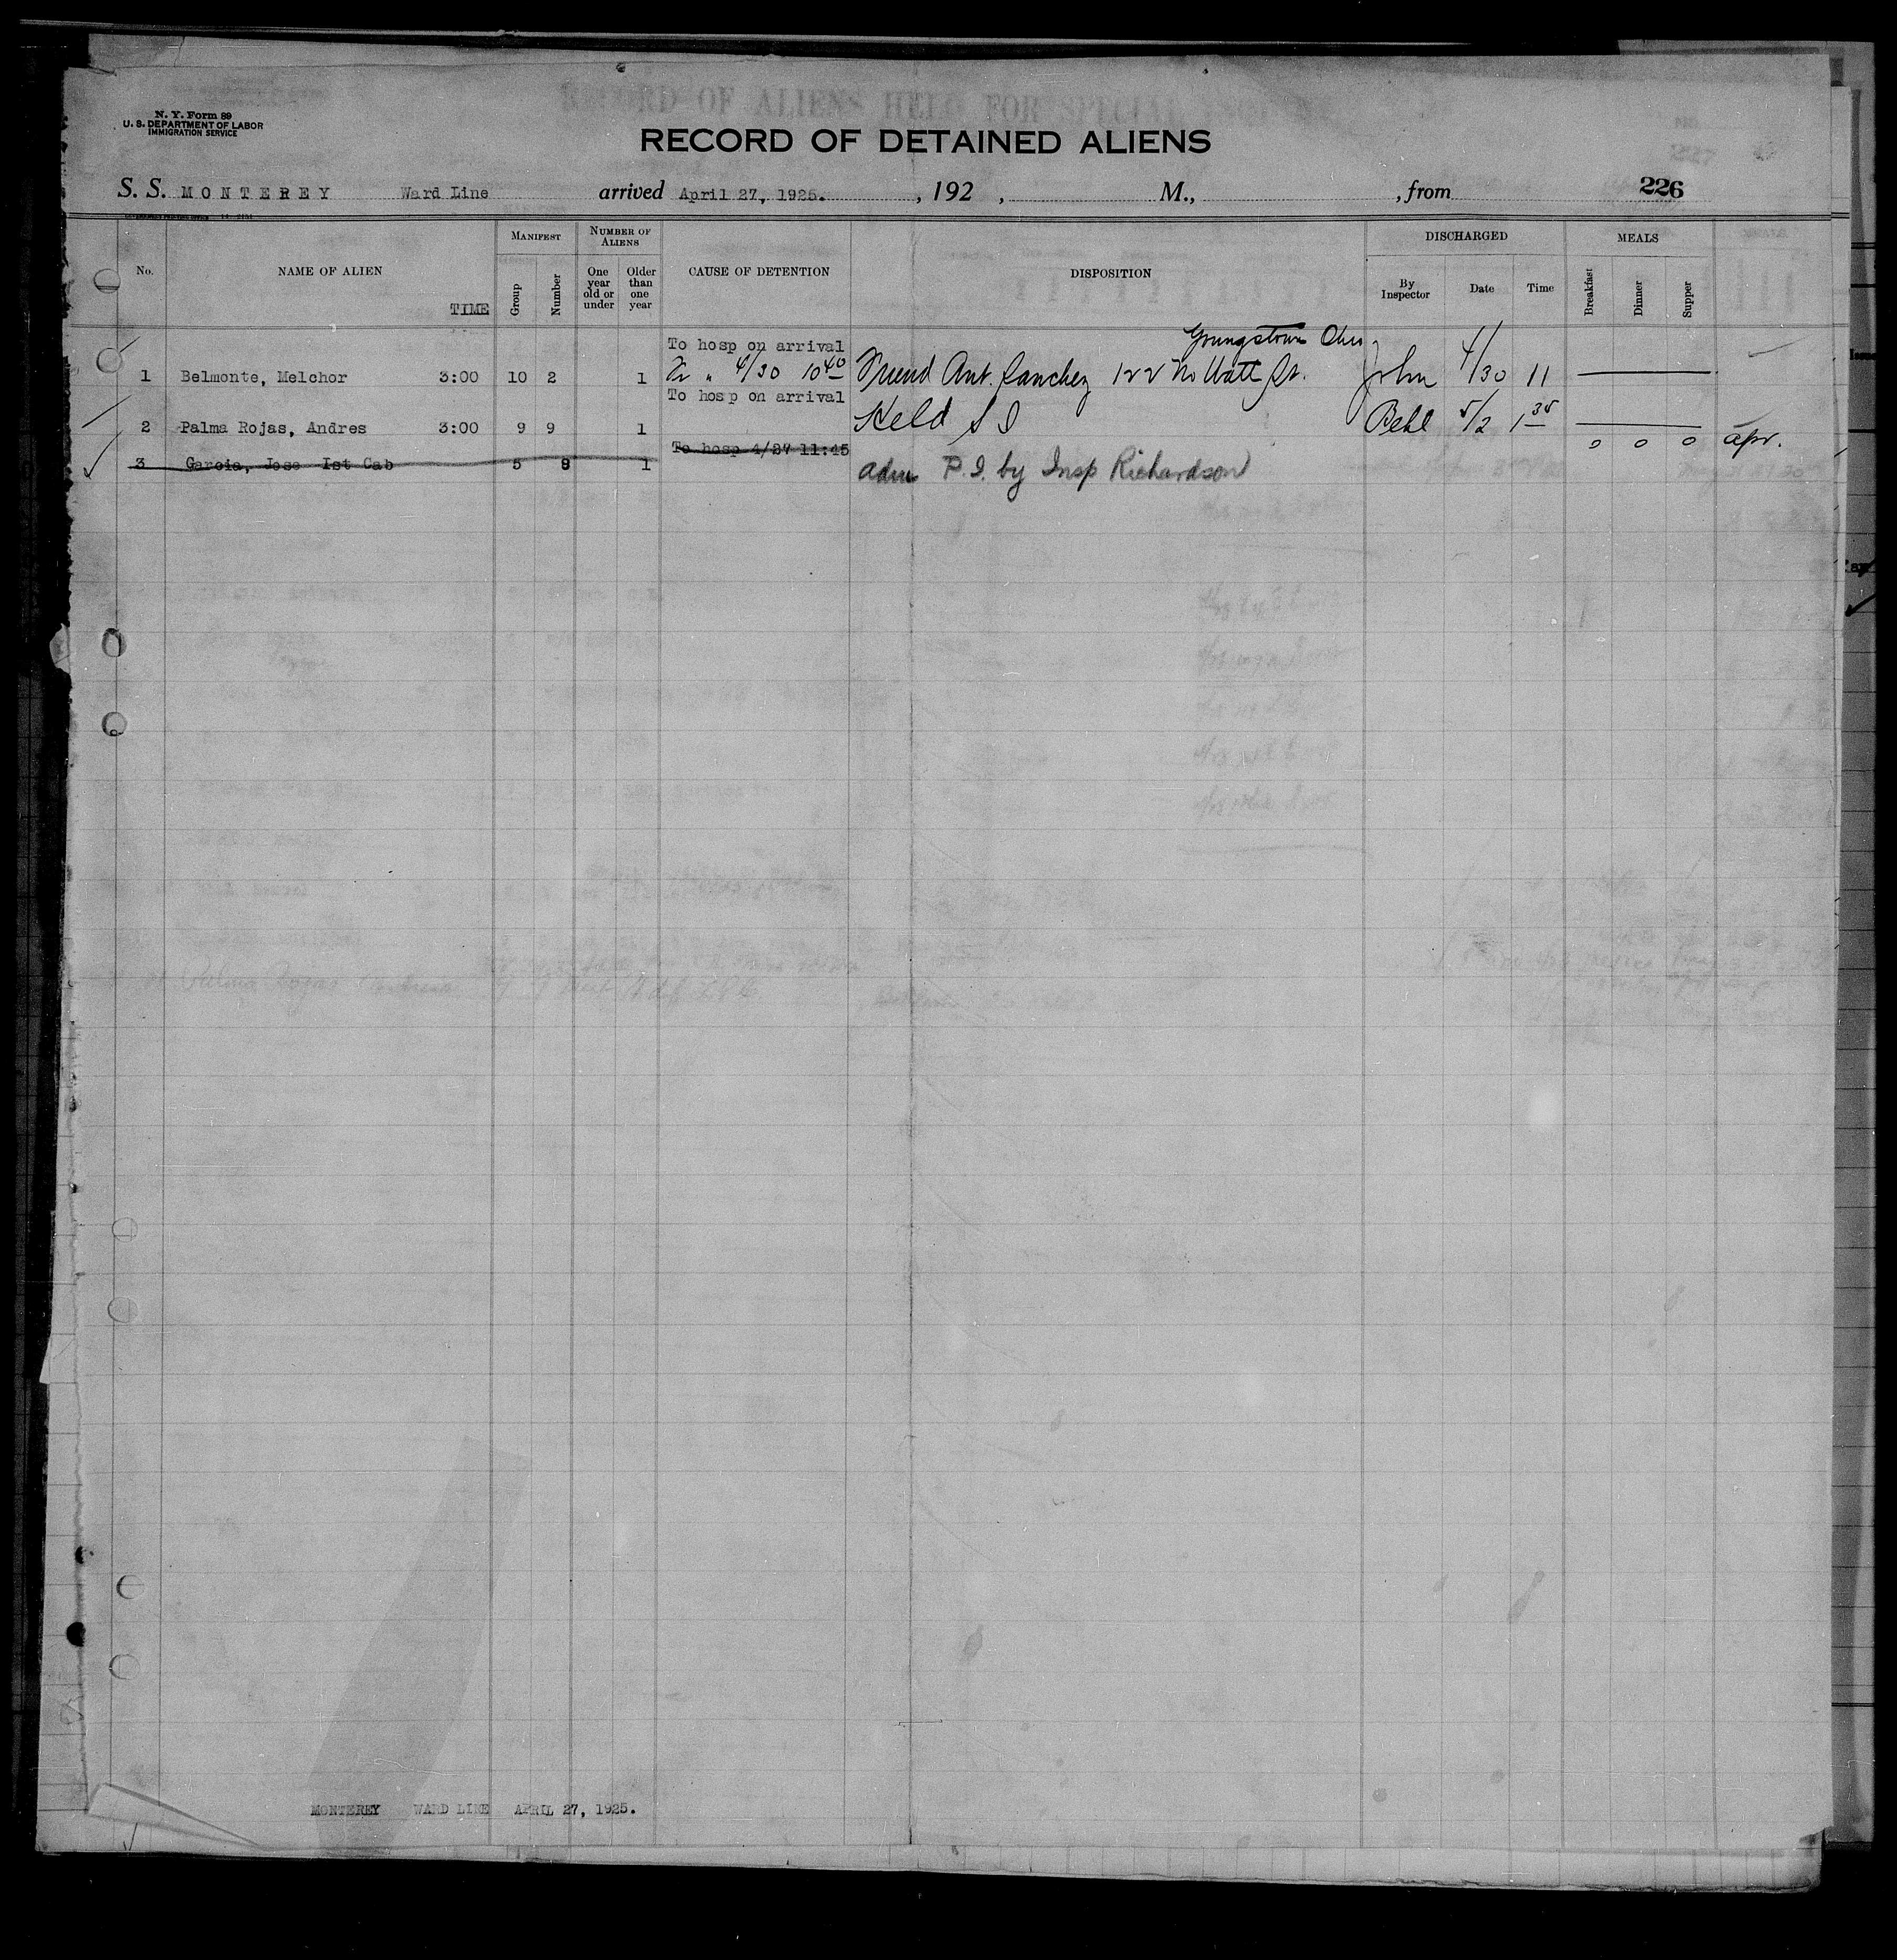 N. Y. Form 89
U. S. DEPARTMENT OF LABOR
IMMIGRATION SERVICE
RECORD OF ALIENS HELD FOR SPECIAL
RECORD OF DETAINED ALIENS
S. S. MONTEREY Ward Line arrived April 27, 1925. , 192 , M., , from 226
No. NAME OF ALIEN TIME MANIFEST Group Number NUMBER OF ALIENS One year old or under Older than one year CAUSE OF DETENTION DISPOSITION DISCHARGED By Inspector Date Time MEALS Breakfast Dinner Supper
To hosp on arrival Youngstown
1 Belmonte, Melchor 3:00 10 2 1 Fr " 4/30 10 40 Friend Ant. Sanchez 122 No Watt St. John 4/30 11
To hosp on arrival
2 Palma Rojas, Andres 3:00 9 9 1 Held S I 5/2 1 35
To hosp 4/27 11:45 0 0 0 apr.
3 Garcia, Jose Ist Cab 5 8 1 adm P. I. by Insp Richardson
MONTEREY WARD LINE APRIL 27, 1925.